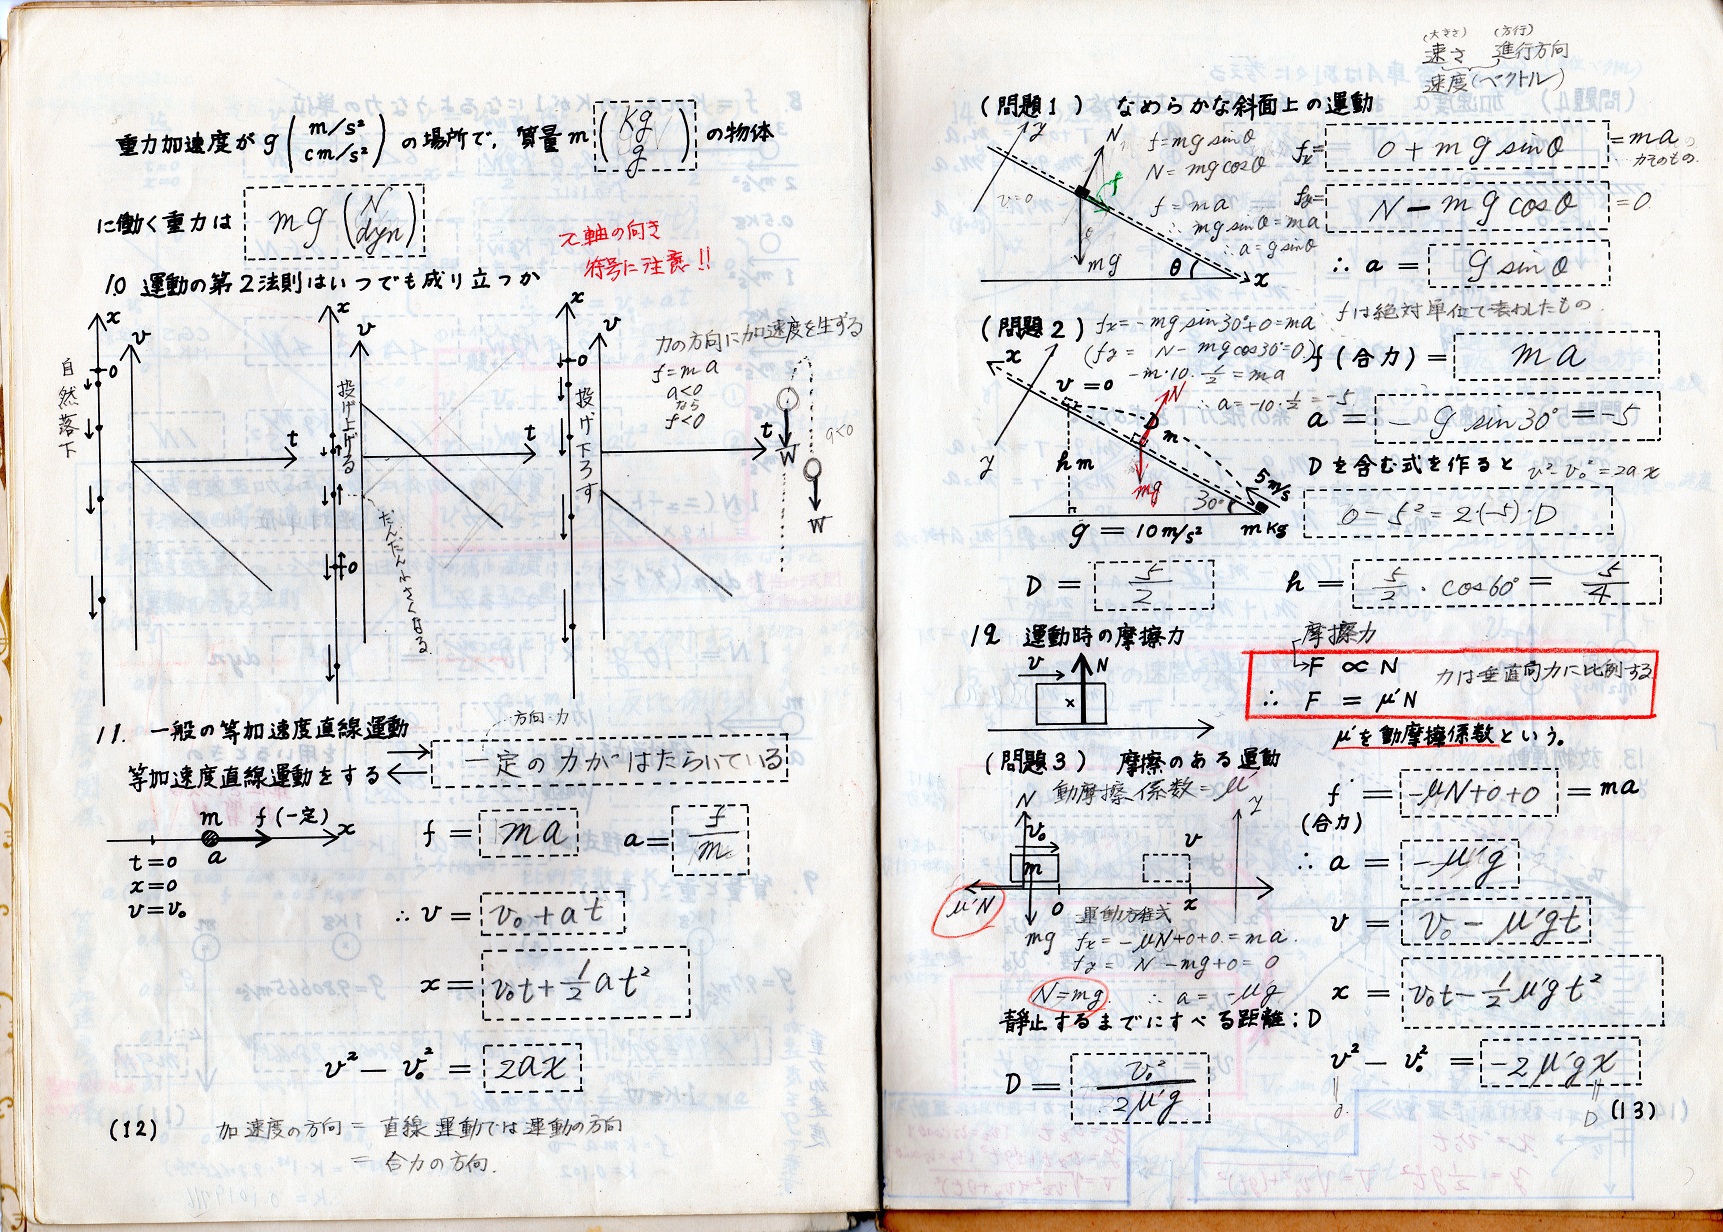 重力加速度が g ( m/s² cm/s² ) の場所で、質量 m ( Kg g ) の物体
に働く重力は mg ( N dyn )
x軸の向き
符号に注意!!
10 運動の第2法則はいつでも成り立つか
自然落下
x
0
v
t
投げ上げる
x
0
v
t
だんだん小さくなる
投げ下ろす
x
0
v
t
力の方向に加速度を生ずる
f = ma
a<0
なら
f<0
W
W
a<0
11. 一般の等加速度直線運動
方向・力
等加速度直線運動をする 一定の力がはたらいている
m f(一定) x
a
t=0
x=0
v=v₀
f = ma a = f/m
∴ v = v₀+at
x = v₀t+½at²
v² − v₀² = 2ax
(12)
加速度の方向 = 直線運動では運動の方向
= 合力の方向.
(大きさ) (方行)
速さ 進行方向
速度(ベクトル)
(問題1) なめらかな斜面上の運動
y
N
v=0
f
mg
θ
x
f=mg sinθ
N=mg cosθ
f=ma
∴ mg sinθ=ma
∴ a=g sinθ
fx= 0+mg sinθ =ma
力そのもの.
fy= N−mg cosθ =0
∴ a = g sinθ
fは絶対単位で表わしたもの
(問題2) fx=−mg sin30°+0=ma
(fy = N−mg cos30°=0)
−m·10·½=ma
∴ a=−10·½=−5
f(合力) = ma
a = −g sin30°=−5
x
v=0
N
D
m
y
h m
mg
5 m/s
30°
g = 10 m/s²
m Kg
Dを含む式を作ると v²−v₀²=2ax
0−5²=2(−5)·D
D = 5/2
h = 5/2 · cos60° = 5/4
12 運動時の摩擦力
v
N
x
摩擦力
F ∝ N 力は垂直向力に比例する
∴ F = μ'N
μ'を動摩擦係数という。
(問題3) 摩擦のある運動
動摩擦係数=μ'
N
v₀
m
v
y
μ'N
0
x
mg
運動方程式
fx=−μN+0+0=ma.
fy= N−mg+0=0
N=mg. ∴ a= −μg
f = −μN+0+0 = ma
(合力)
∴ a = −μ'g
v = v₀−μ'gt
x = v₀t−½μ'gt²
静止するまでにすべる距離:D
D = v₀²/2μ'g
v² − v₀² = −2μ'gx
0
D
(13)